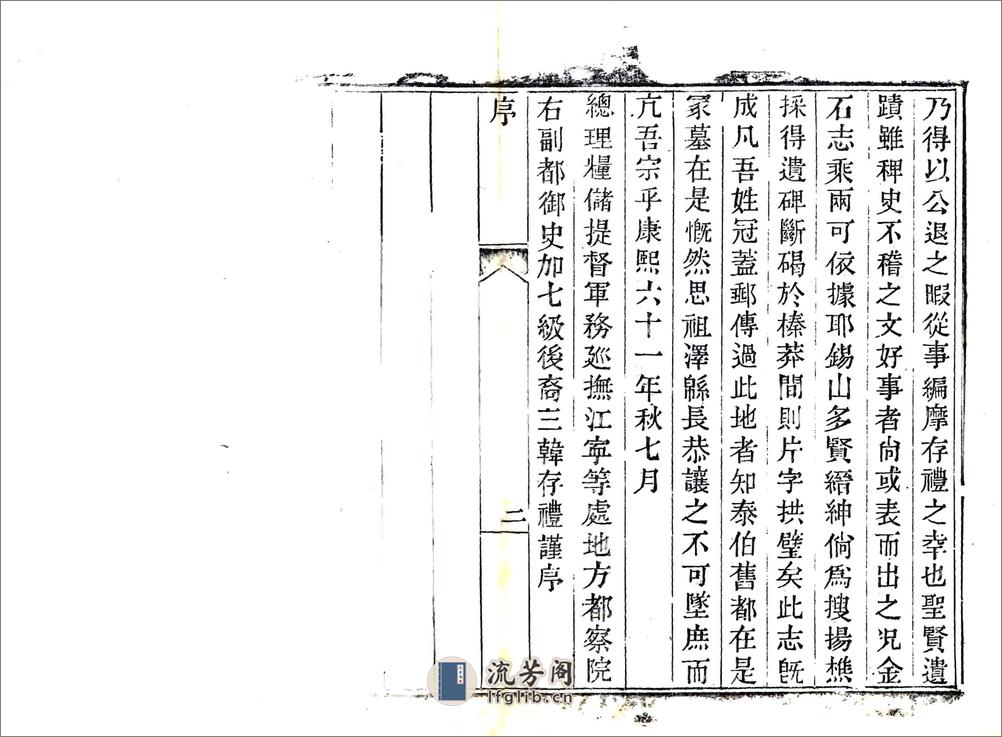 乃得以公退之暇從事編摩存禮之幸也聖賢遺
蹟雖稗史不稽之文好事者尙或表而出之况金
石志乘兩可依據耶錫山多賢縉紳倘爲搜揚樵
採得遺碑斷碣於榛莽間則片字拱璧矣此志旣
成凡吾姓冠蓋郵傳過此地者知泰伯舊都在是
冢墓在是慨然思祖澤緜長恭讓之不可墜庶而
亢吾宗乎康熙六十一年秋七月
總理糧儲提督軍務廵撫江寜等處地方都察院
右副都御史加七級後裔三韓存禮謹序
序
二
流芳阁
lfglib.cn